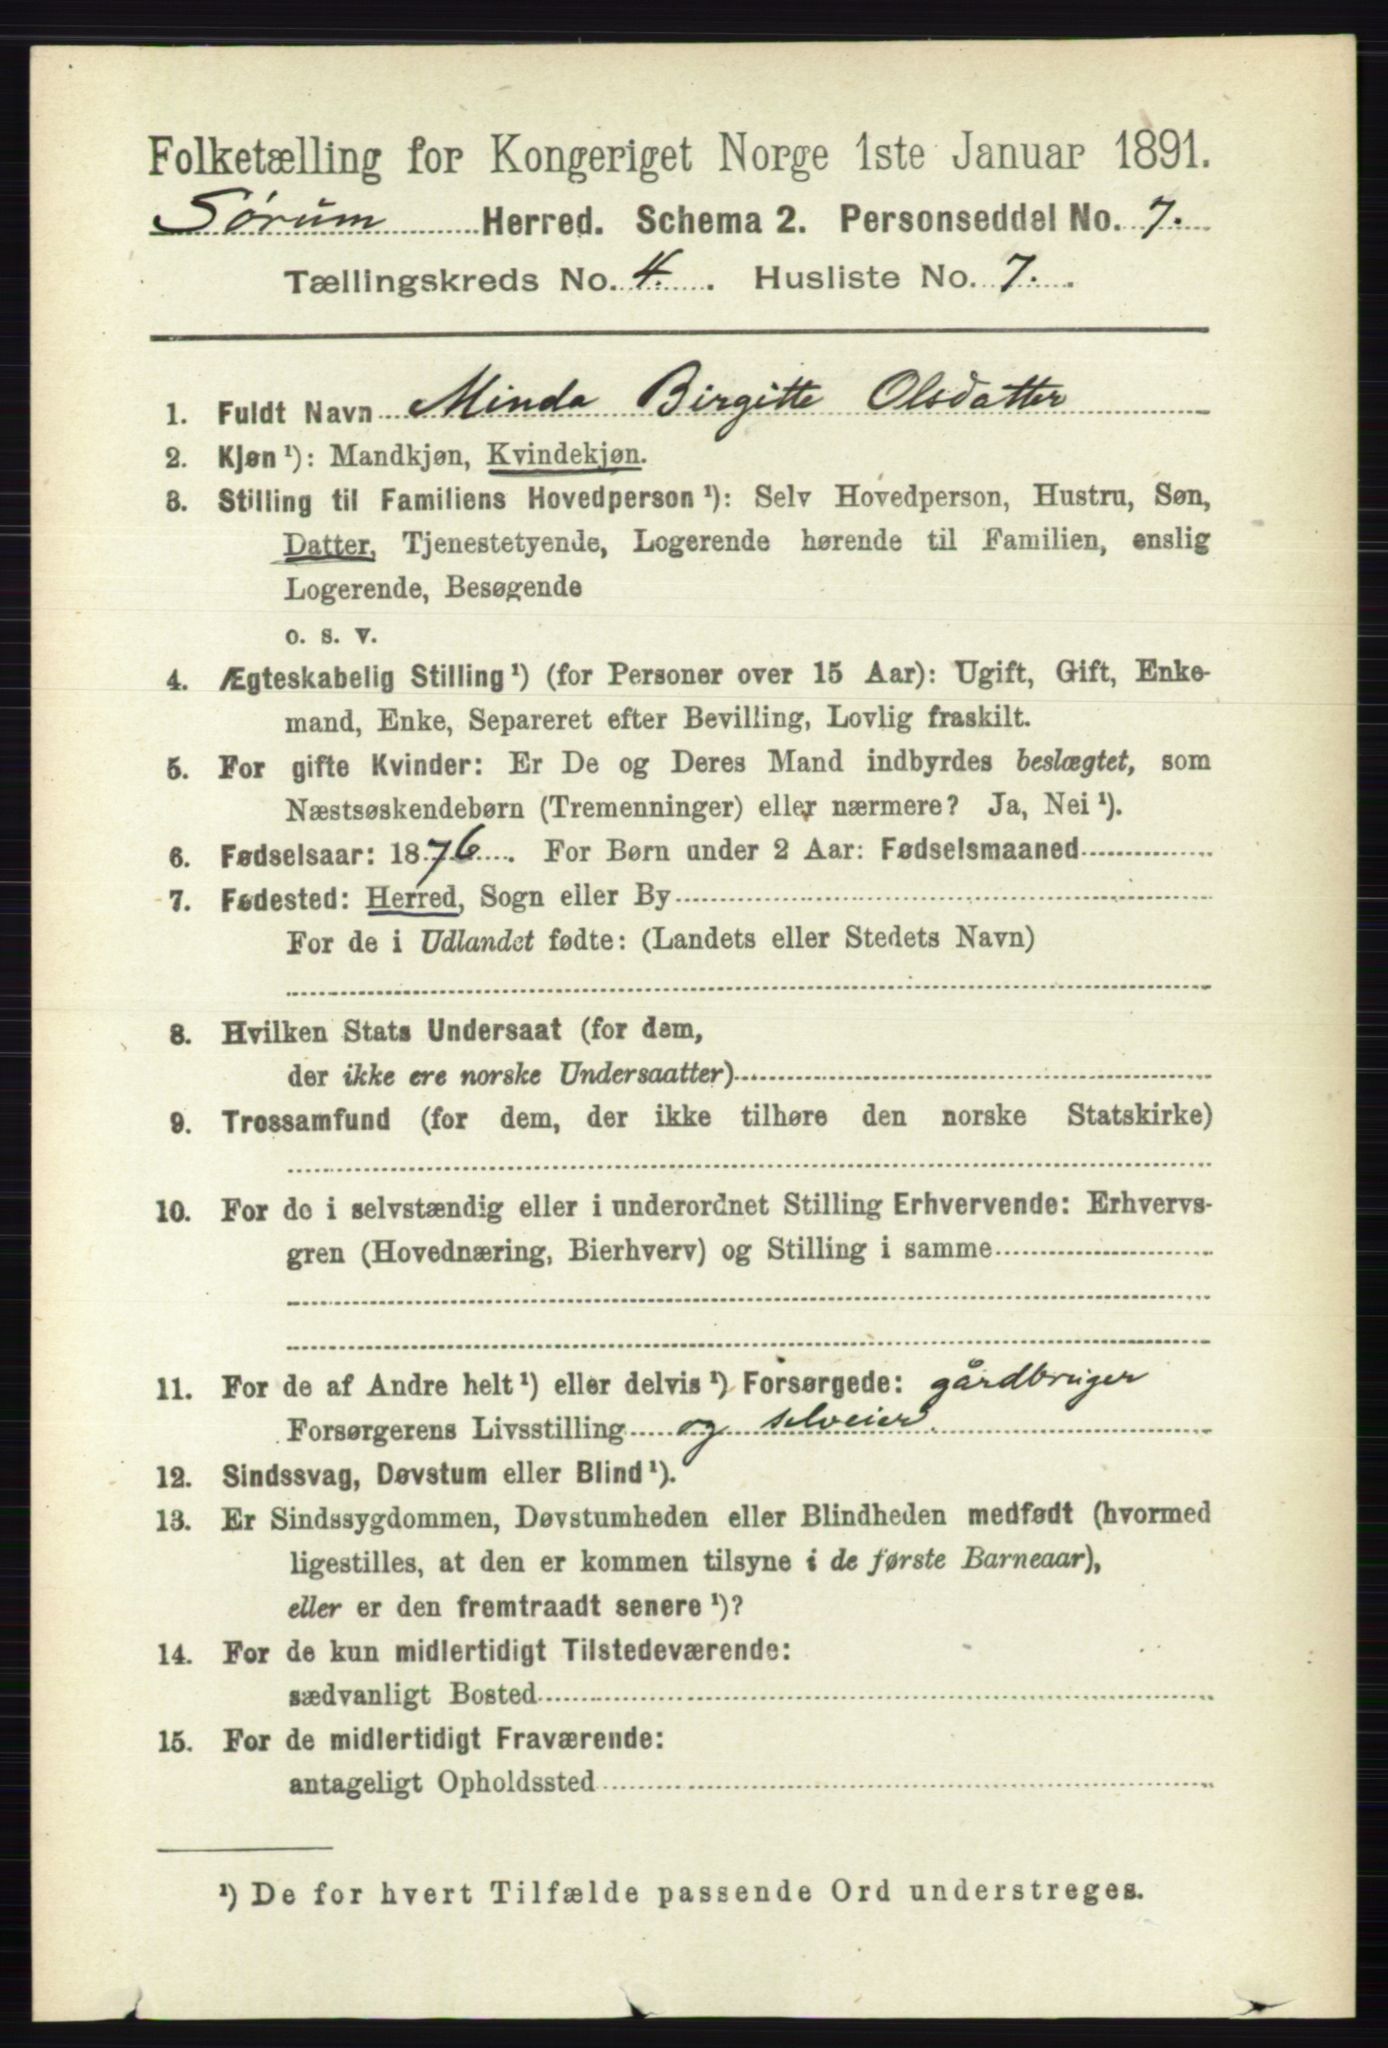 Folketælling for Kongeriget Norge 1ste Januar 1891.
Sørum Herred. Schema 2. Personseddel No. 7.
Tællingskreds No. 4. Husliste No. 7.
1. Fuldt Navn Minda Birgitte Olsdatter
2. Kjøn ¹): Mandkjøn, Kvindekjøn.
3. Stilling til Familiens Hovedperson ¹): Selv Hovedperson, Hustru, Søn,
Datter, Tjenestetyende, Logerende hørende til Familien, enslig
Logerende, Besøgende
o. s. v.
4. Ægteskabelig Stilling ¹) (for Personer over 15 Aar): Ugift, Gift, Enke-
mand, Enke, Separeret efter Bevilling, Lovlig fraskilt.
5. For gifte Kvinder: Er De og Deres Mand indbyrdes beslægtet, som
Næstsøskendebørn (Tremenninger) eller nærmere? Ja, Nei ¹).
6. Fødselsaar: 1876. For Børn under 2 Aar: Fødselsmaaned
7. Fødested: Herred, Sogn eller By
For de i Udlandet fødte: (Landets eller Stedets Navn)
8. Hvilken Stats Undersaat (for dem,
der ikke ere norske Undersaatter)
9. Trossamfund (for dem, der ikke tilhøre den norske Statskirke)
10. For de i selvstændig eller i underordnet Stilling Erhvervende: Erhvervs-
gren (Hovednæring, Bierhverv) og Stilling i samme
11. For de af Andre helt ¹) eller delvis ¹) Forsørgede: gårdbruger
Forsørgerens Livsstilling og selveier
12. Sindssvag, Døvstum eller Blind ¹).
13. Er Sindssygdommen, Døvstumheden eller Blindheden medfødt (hvormed
ligestilles, at den er kommen tilsyne i de første Barneaar),
eller er den fremtraadt senere ¹)?
14. For de kun midlertidigt Tilstedeværende:
sædvanligt Bosted
15. For de midlertidigt Fraværende:
antageligt Opholdssted
¹) De for hvert Tilfælde passende Ord understreges.